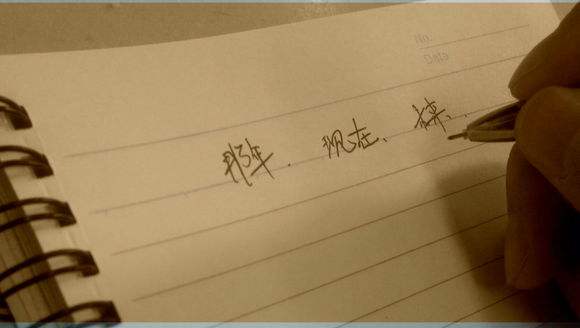 No.
Date
那年. 现在、